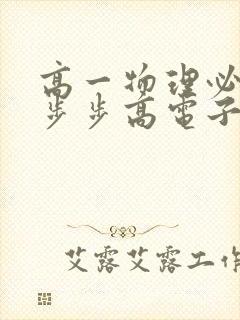 高一物理必
步步高电子
艾露艾露工作